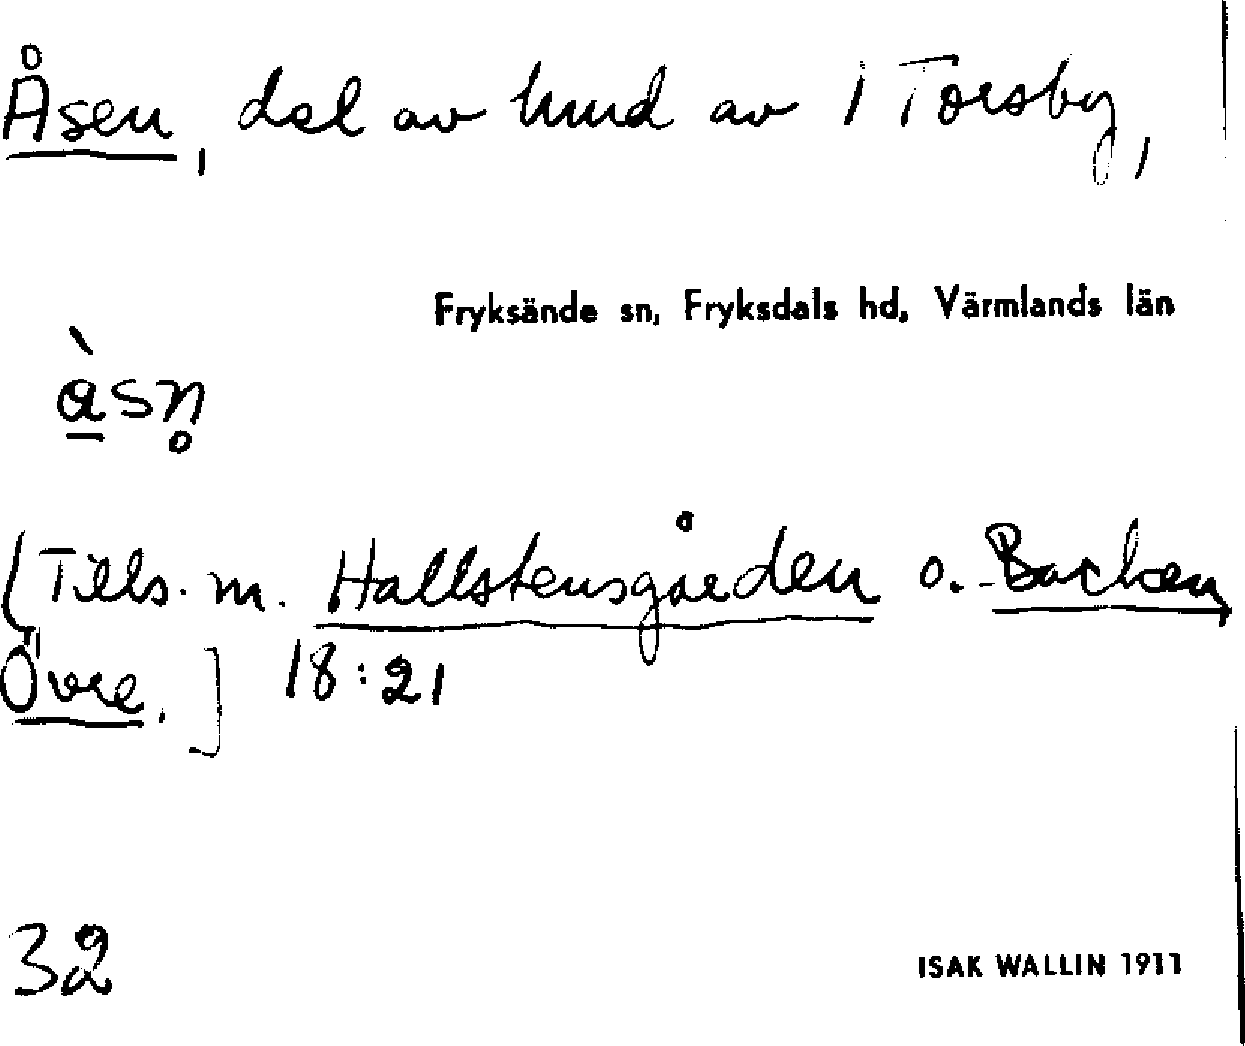 Åsen, del av hmd av 1 Torsby,
Fryksände sn, Fryksdals hd, Värmlands län
[Tills. m. Hallstensgården o. Backen,
Övre.] 18:21
32
ISAK WALLIN 1911